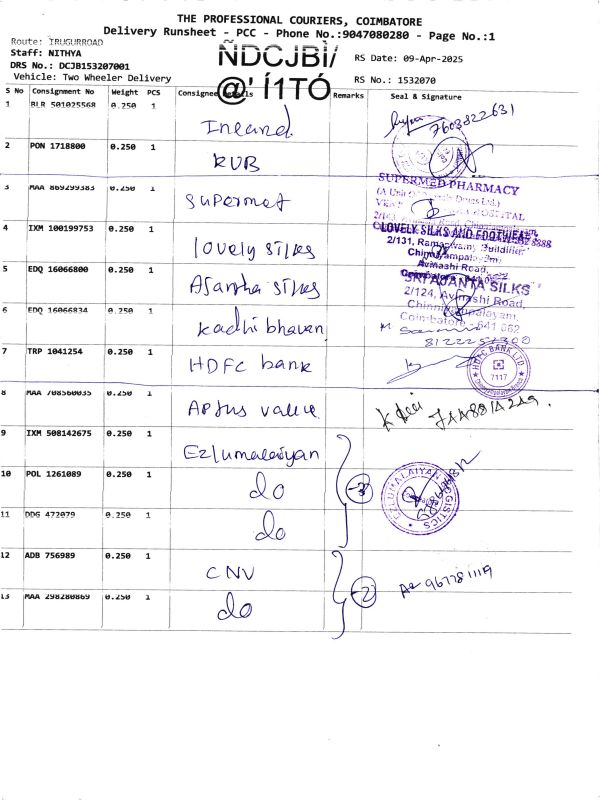 THE PROFESSIONAL COURIERS, COIMBATORE
Delivery Runsheet - PCC - Phone No.:9047080280 - Page No.:1
Route: IRUGURROAD
Staff: NITHYA
DRS No.: DCJB153207001
Vehicle: Two Wheeler Delivery
ÑDCJBÌ/
@' Í1TÓ
RS Date: 09-Apr-2025
RS No.: 1532070
S No Consignment No Weight PCS Consignee Details Remarks Seal & Signature
1 BLR 501025568 0.250 1 7603822631
2 PON 1718800 0.250 1 KVB
3 MAA 869299383 0.250 1 Supermet
SUPERMED PHARMACY
4 IXM 100199753 0.250 1 lovely silks
LOVELY SILKS AND FOOTWEAR
2/131, Ramaswamy Building,
Chinniyampalayam,
Avinashi Road,
5 EDQ 16066800 0.250 1 Ajantha silks
SRI AJANTA SILKS
2/124, Avinashi Road,
Chinniyampalayam,
Coimbatore - 641 062
6 EDQ 16066834 0.250 1 Kadhi bhavan
7 TRP 1041254 0.250 1 HDFC bank
HDFC BANK LTD
7117
8 MAA 708560035 0.250 1 Aptus value
9 IXM 508142675 0.250 1 Ezlumalaiyan
10 POL 1261089 0.250 1 do -3
EZLUMALAIYAN LOGISTICS
11 DDG 472079 0.250 1 do
12 ADB 756989 0.250 1 CNV
13 MAA 298280869 0.250 1 do -2